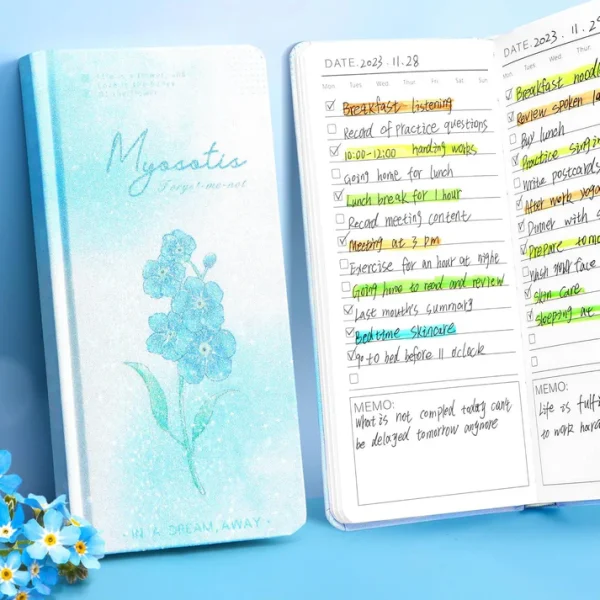 Myosotis
Forget-me-not
IN A DREAM, AWAY
DATE. 2023 . 11 . 28
Mon. Tues. Wed. Thur. Fri. Sat. Sun.
Breakfast listening
Record of practice questions
10:00-12:00 handing works
Going home for lunch
Lunch break for 1 hour
Record meeting content
Meeting at 3 pm
Exercise for an hour at night
Going home to read and review
Last mouth's summary
Bedtime skincare
go to bed before 11 o'clock
MEMO:
What is not compled today can't
be delazed tomorrow anymore
DATE. 2023 . 11 . 29
Mon. Tues. Wed. Thur.
Breakfast noodle
Review spoken
Buy lunch
Practice
Write postcards
After work yoga
Dinner with
Prepare
Wash face
Skin care
Sleeping at
MEMO:
Life is
to work